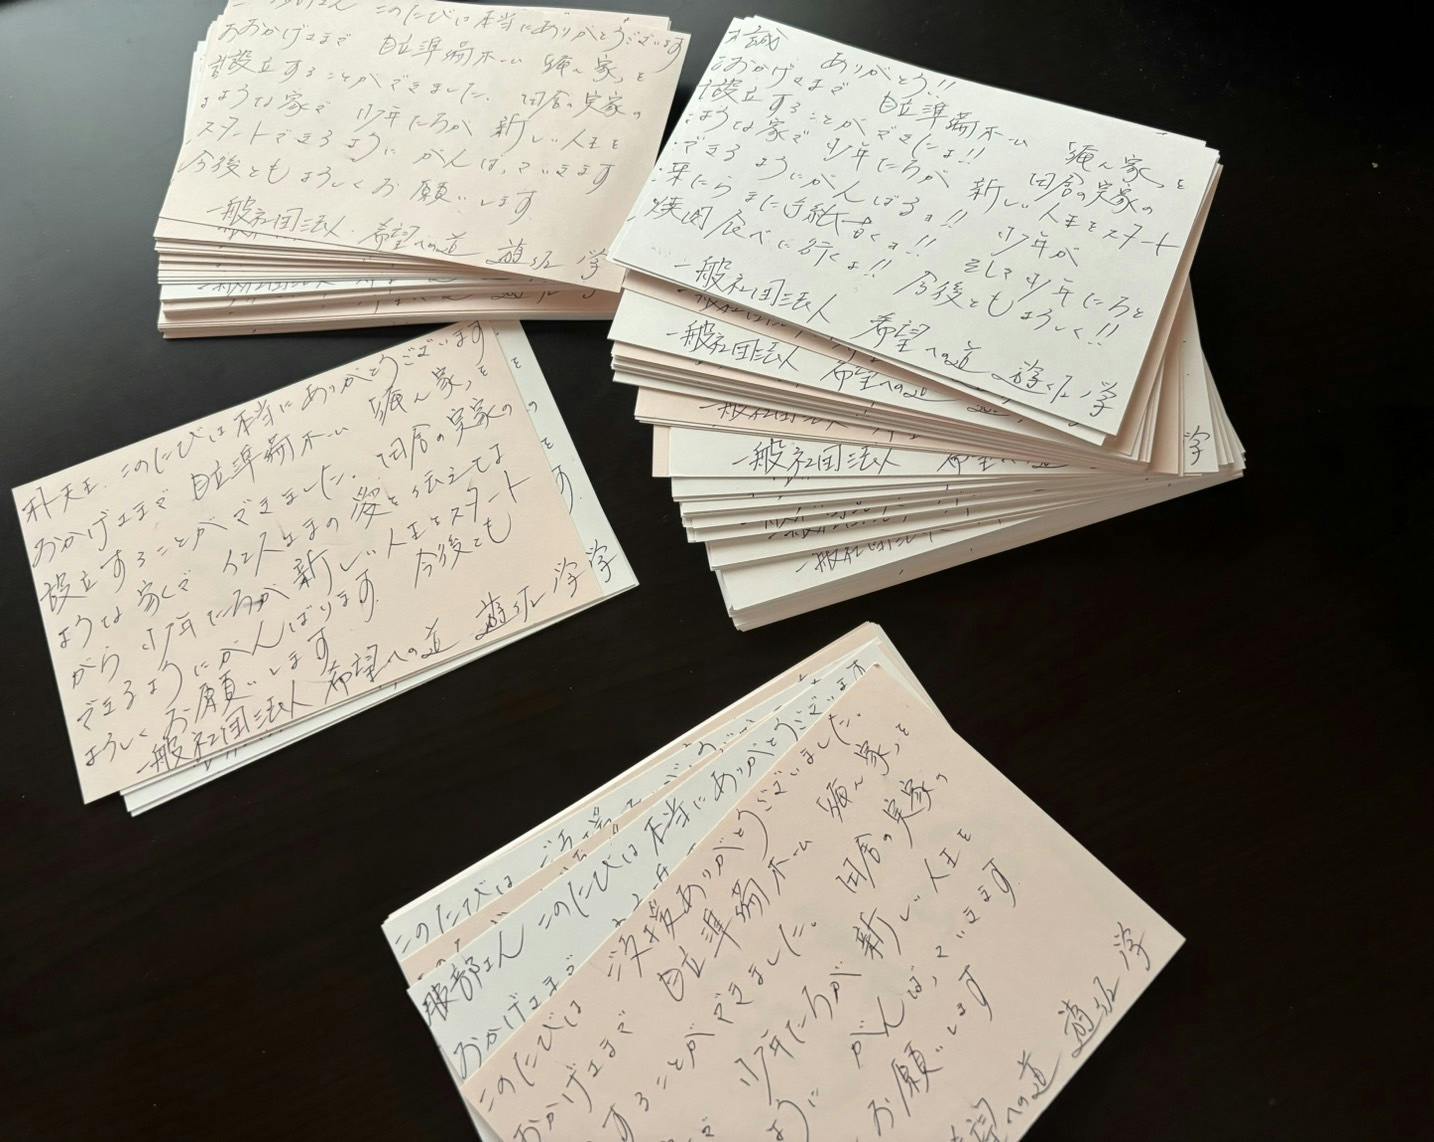 このたびは本当にありがとうございます
おかげさまで 自立準備ホーム 「 家」を
設立することができました。田舎の実家の
ような家で 少年たちが 新しい人生を
スタートできるように がんばっていきます
今後とも よろしくお願いします
一般社団法人 希望への道 遊佐 学
誠 ありがとう!!
おかげさまで 自立準備ホーム 「 家」を
設立することができたよ!! 田舎の実家の
ような家で 少年たちが 新しい人生をスタート
できるようにがんばるョ!! 少年が
来たらまた手紙書くョ!! そして少年たちと
焼肉食べに行くよ!! 今後ともよろしく!!
一般社団法人 希望への道 遊佐 学
一般社団法人 希望への道
一般社団法人
一般社団法人 希望
学
一般社団法人
このたびは本当にありがとうございます
おかげさまで 自立準備ホーム 「 家」を
設立することができました。田舎の実家の
ような家で イエスさまの愛を伝えてな
がら 少年たちが 新しい人生をスタート
できるようにがんばります 今後とも
よろしくお願いします
一般社団法人 希望への道 遊佐 学
学
このたびは
服部さん このたびは本当にありがとうございます
おかげさまで
このたびは ご支援ありがとうございました。
おかげさまで 自立準備ホーム 「 家」を
することができました。田舎の実家の
で 少年たちが 新しい人生を
ように がんばっていきます
お願いします
望への道 遊佐 学